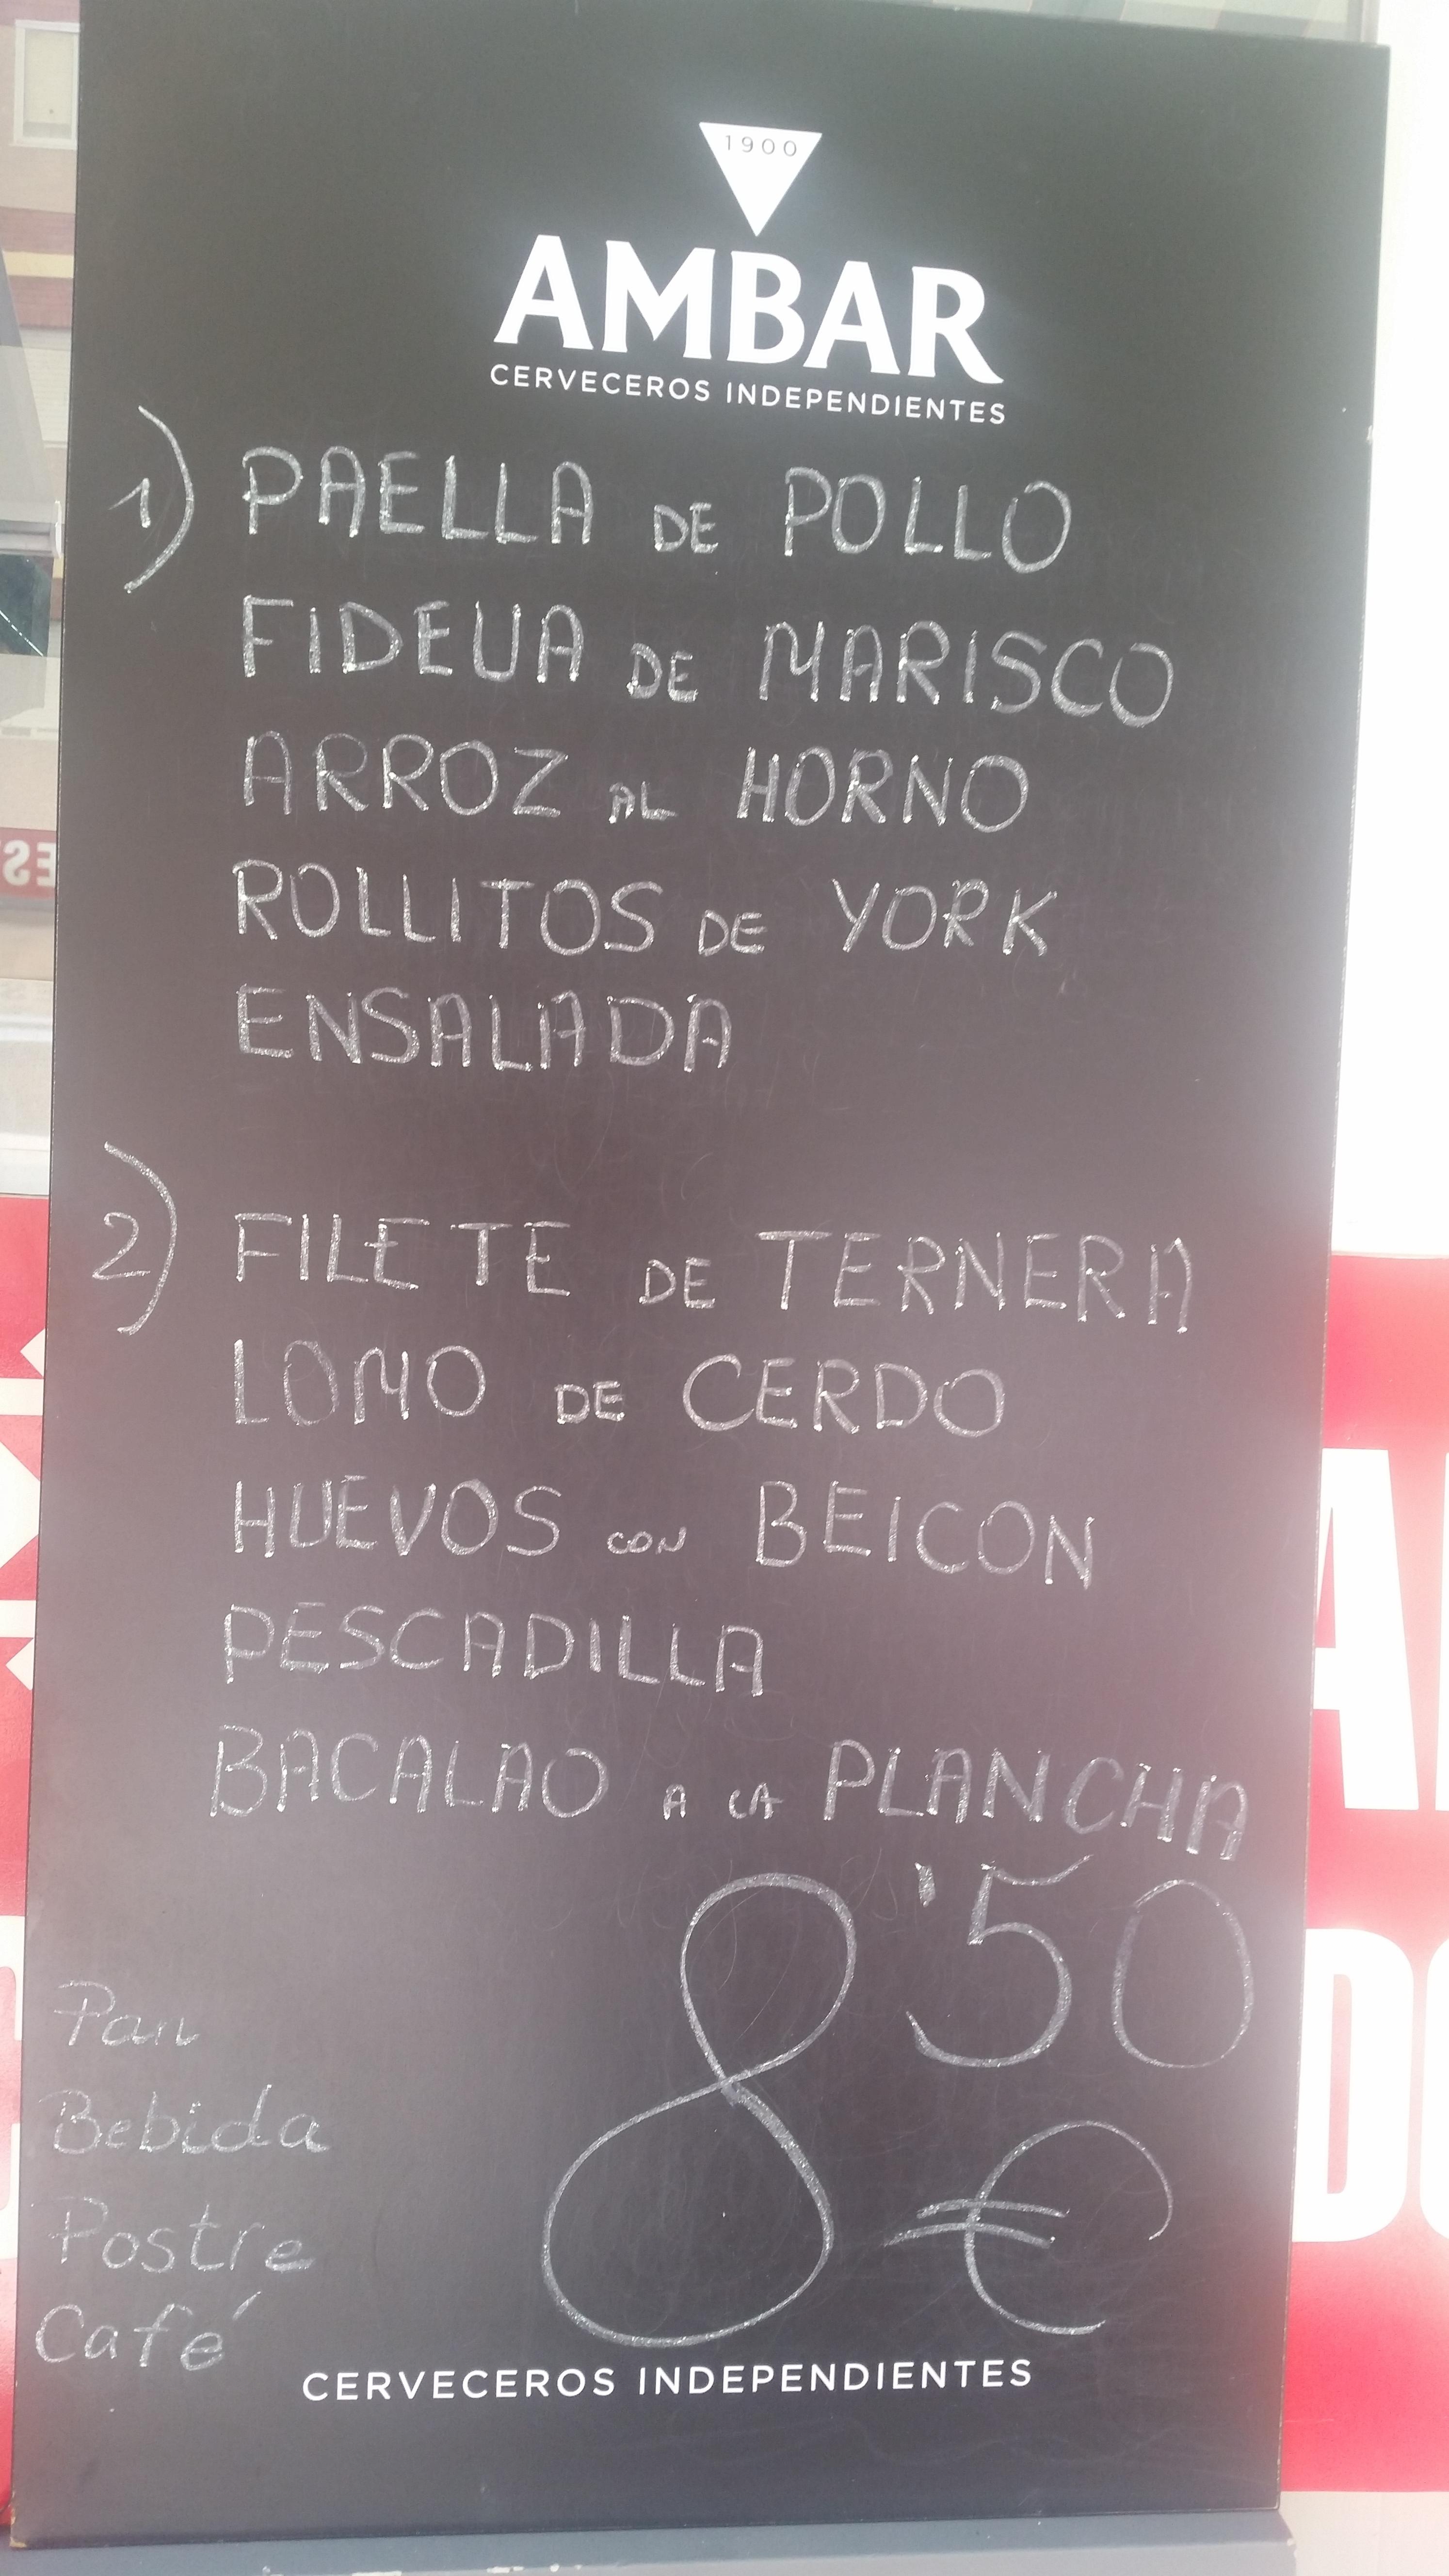 1900
AMBAR
CERVECEROS INDEPENDIENTES
1) PAELLA DE POLLO
FIDEUA DE MARISCO
ARROZ AL HORNO
ROLLITOS DE YORK
ENSALADA
2) FILETE DE TERNERA
LOMO DE CERDO
HUEVOS CON BEICON
PESCADILLA
BACALAO A LA PLANCHA
8'50 €
Pan
Bebida
Postre
Café
CERVECEROS INDEPENDIENTES